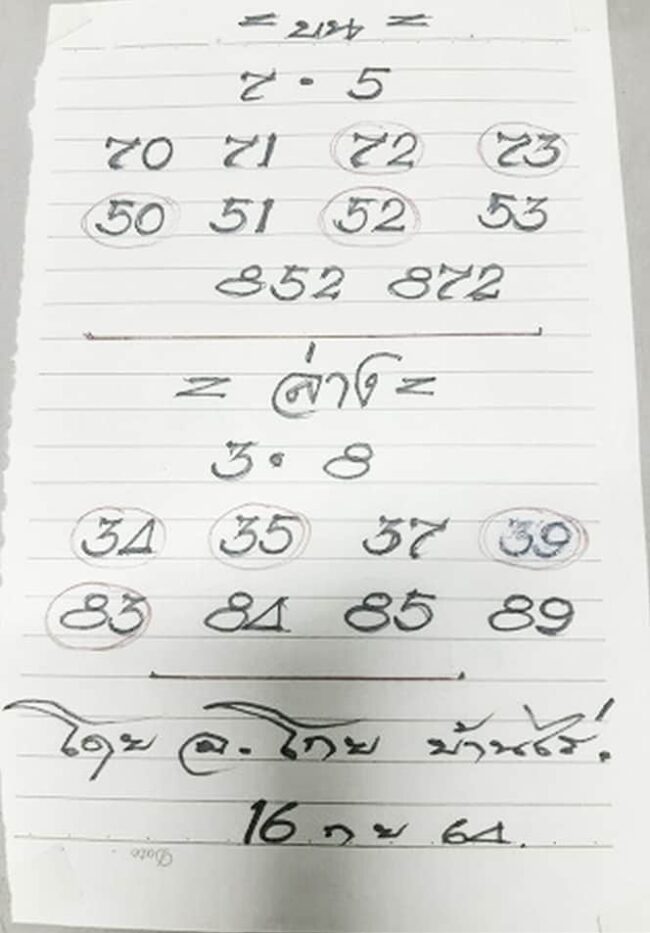 = บน =
7 · 5
70 71 72 73
50 51 52 53
852 872
= ล่าง =
3 · 8
34 35 37 39
83 84 85 89
โดย อ. โกย บ้านไร่.
16 กย 64.
Date